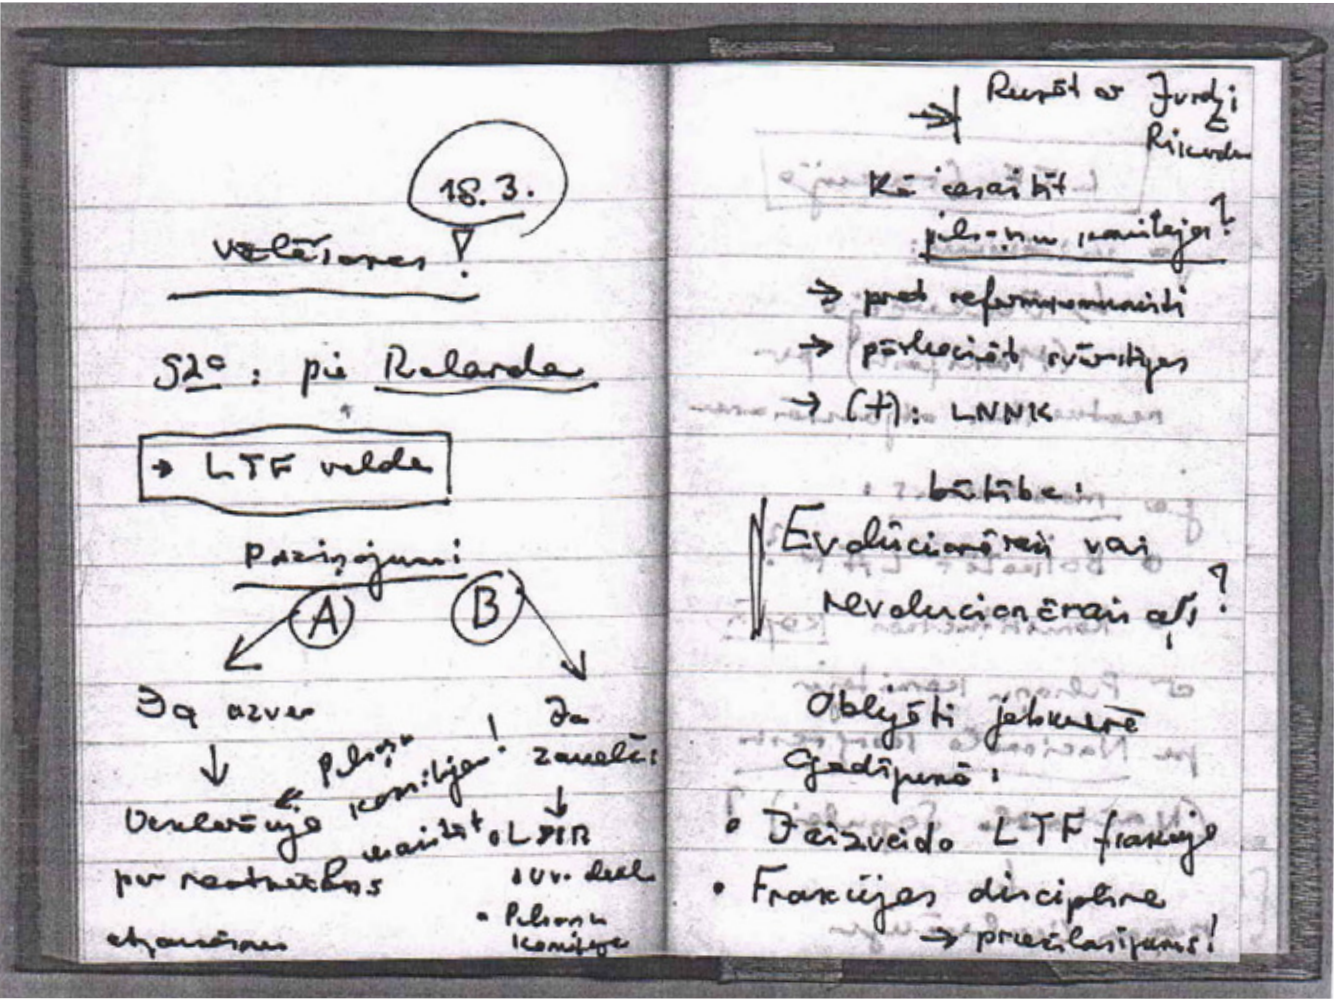 18.3.
Vēlēšanas!
S20: pie Rolanda
→ LTF valde
Paziņojumi
A B
Ja uzvar
Ja
zaudē:
Pilsoņu
komitejas!
Deklarācija
par neatkarības
atjaunošanu
• LPSR
suv. dekl.
• Pilsoņu
komitejas
Runāt ar Jurģi
Rikardu
Kā iesaistīt
pilsoņu komitejas?
→ pret reformkomunisti
→ pārliecināt svārstīgos
→ (+): LNNK
būtība:
Evolūcionārai vai
revolucionārai ?
Obligāti jebkurā
gadījumā:
• Jāizveido LTF frakcija
• Frakcijas disciplīna
→ priekšlasījums!